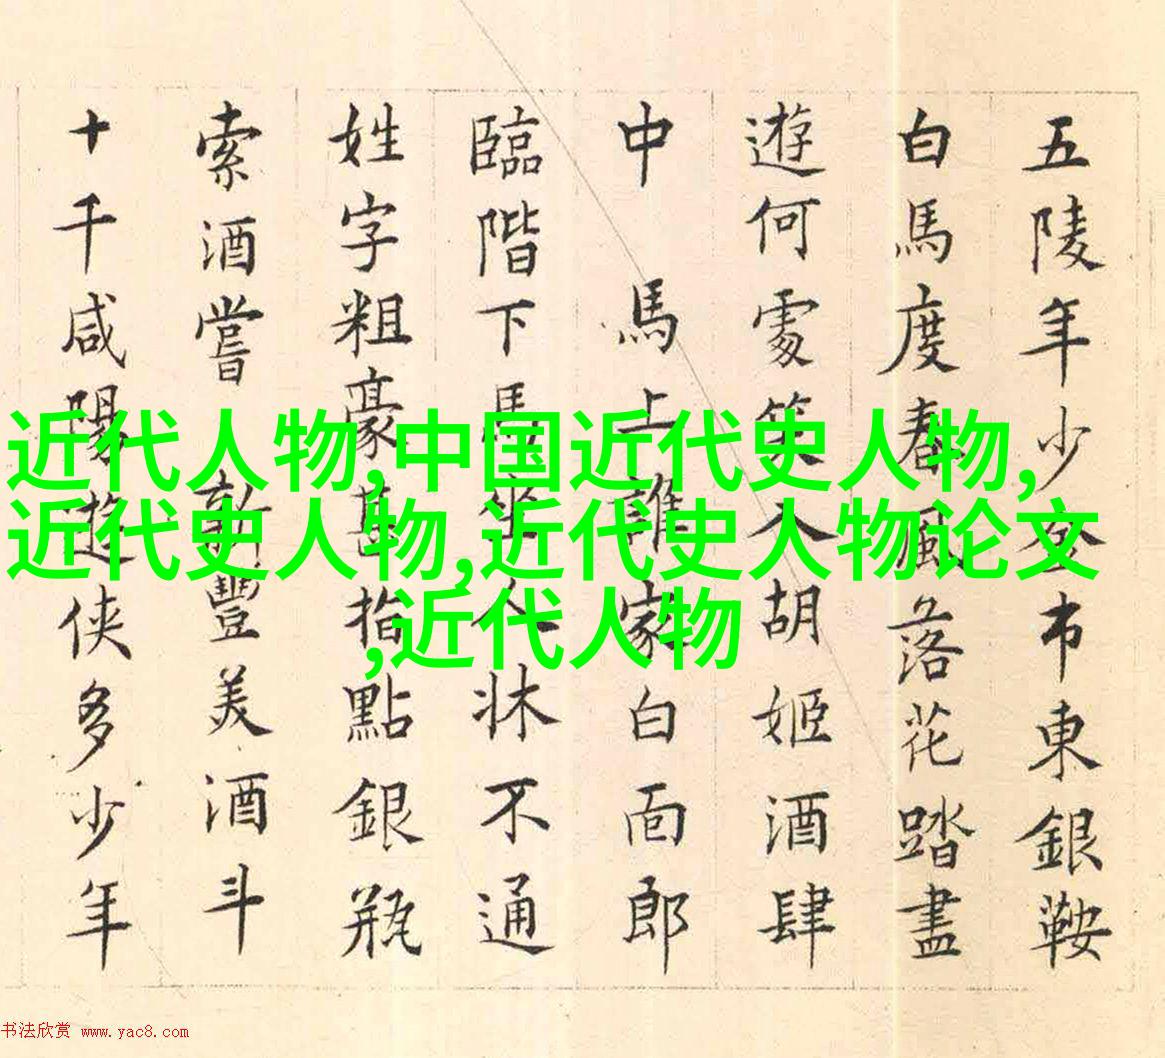 五陵年少金市東銀鞍
白馬度春風落花踏盡
遊何處笑入胡姬酒肆
中 馬上誰家白面郎
臨階下馬坐人牀不通
姓字粗豪甚指點銀瓶
索酒嘗 新豐美酒斗
十千咸陽遊俠多少年
近代人物,中国近代史人物,
近代史人物,近代史人物论文
,近代人物
书法欣赏 www.yac8.com